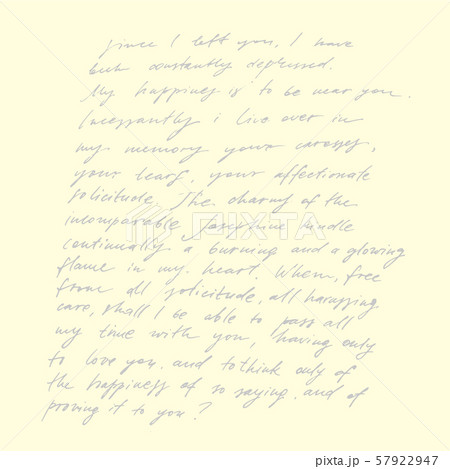 since I left you, I have
been constantly depressed.
My happiness is to be near you.
Incessantly i live over in
my memory your caresses,
your tears, your affectionate
solicitude. The charms of the
incomparable Josephine kindle
continually a burning and a glowing
flame in my heart. When, free
from all solicitude, all harassing
care, shall I be able to pass all
my time with you, having only
to love you, and to think only of
the happiness of so saying, and of
proving it to you?
PIXTA
pixta.jp - 57922947